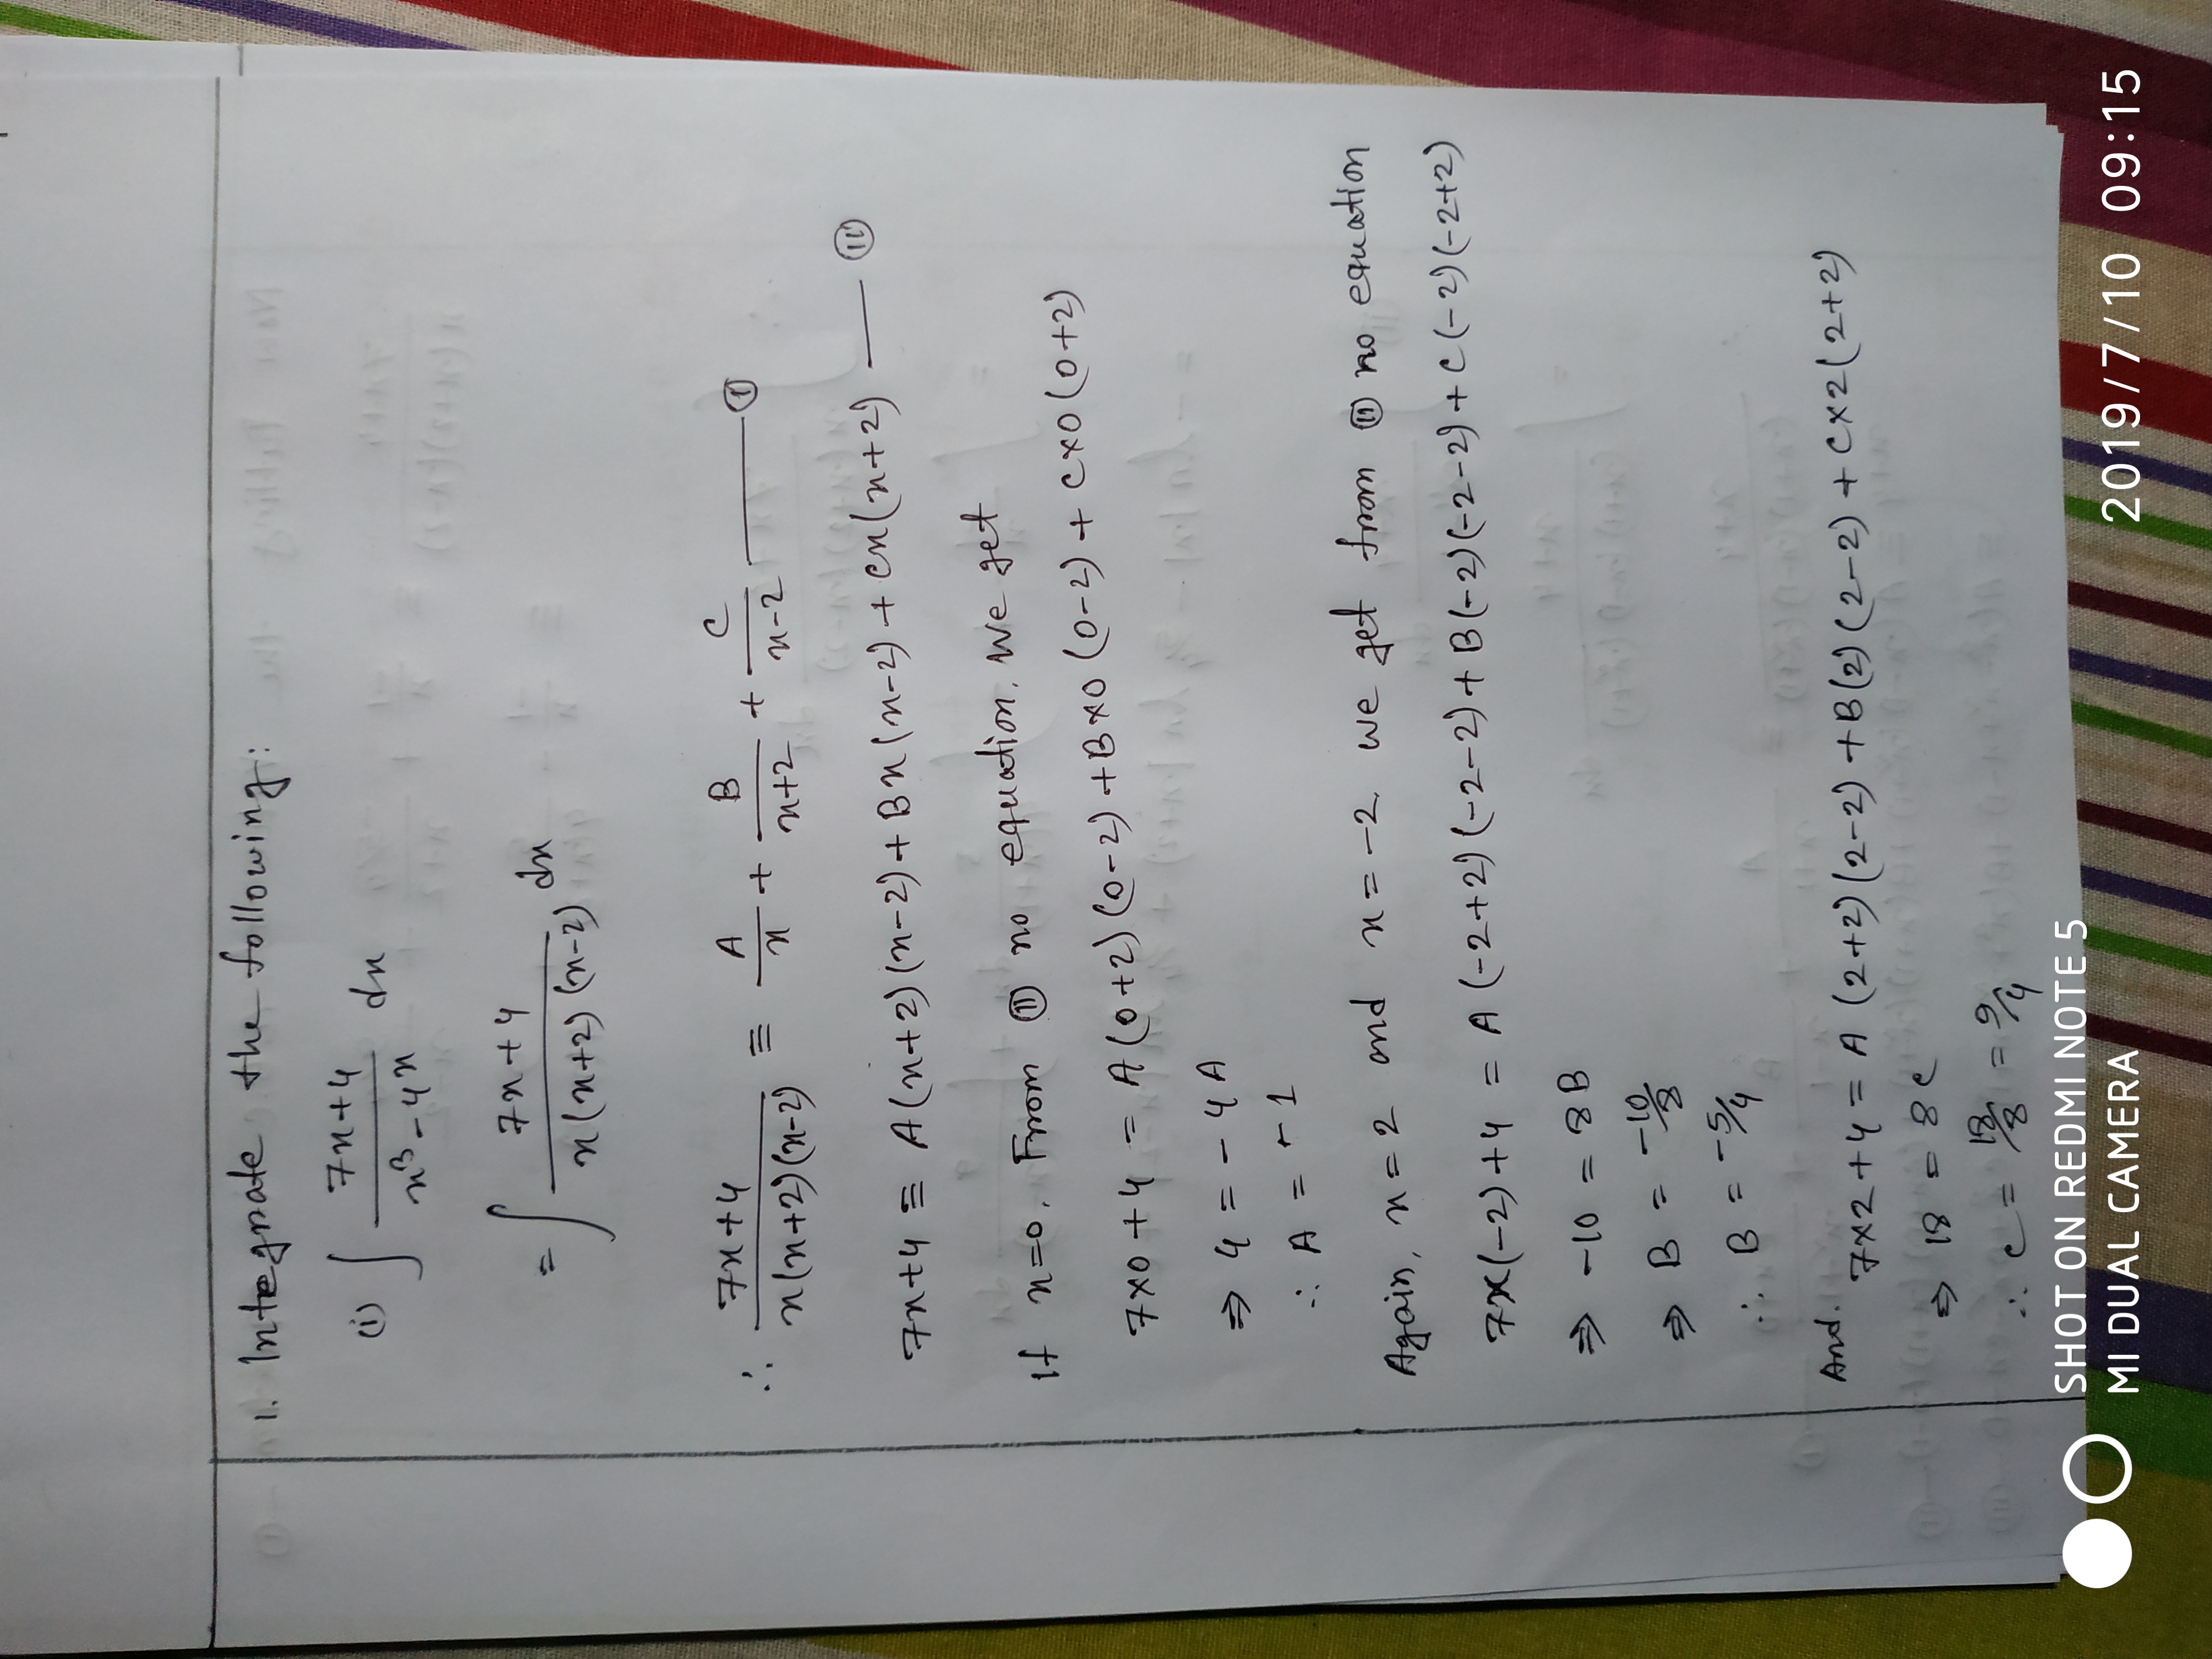 1. Integrate the following:
(i) ∫ (7x+4)/(x³-4x) dx
= ∫ (7x+4)/(x(x+2)(x-2)) dx
∴ (7x+4)/(x(x+2)(x-2)) ≡ A/x + B/(x+2) + C/(x-2) —— (I)
7x+4 ≡ A(x+2)(x-2) + Bx(x-2) + Cx(x+2) —— (II)
If x=0, From (II) no equation, we get
7×0+4 = A(0+2)(0-2) + B×0(0-2) + C×0(0+2)
⇒ 4 = -4A
∴ A = -1
Again, x=2 and x=-2, we get from (II) no equation
7×(-2)+4 = A(-2+2)(-2-2) + B(-2)(-2-2) + C(-2)(-2+2)
⇒ -10 = 8B
⇒ B = -10/8
∴ B = -5/4
And,
7×2+4 = A(2+2)(2-2) + B(2)(2-2) + C×2(2+2)
⇒ 18 = 8C
∴ C = 18/8 = 9/4
SHOT ON REDMI NOTE 5
MI DUAL CAMERA
2019/7/10 09:15